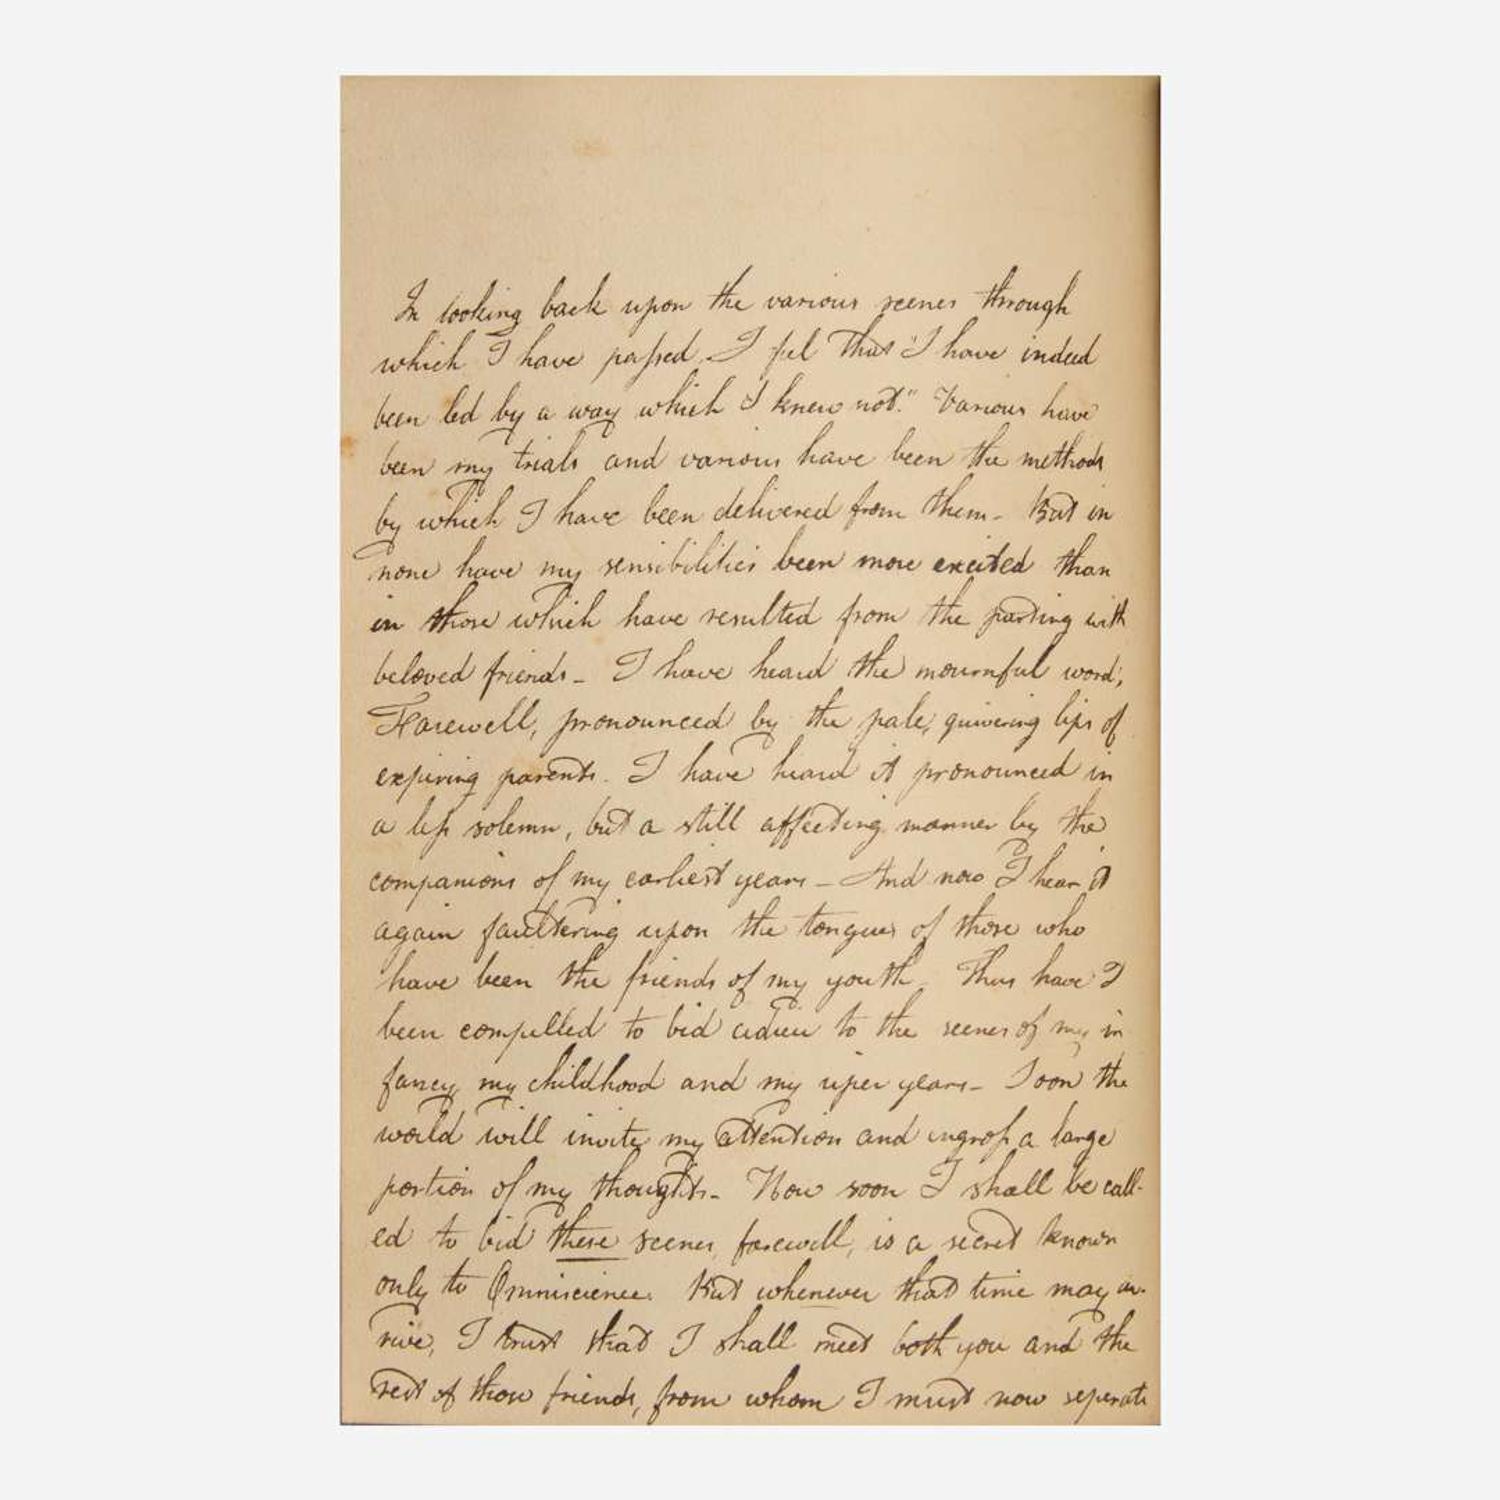 In looking back upon the various scenes through
which I have passed, I feel that "I have indeed
been led by a way which I knew not." Various have
been my trials and various have been the methods
by which I have been delivered from them - But in
none have my sensibilities been more excited than
in those which have resulted from the parting with
beloved friends - I have heard the mournful word,
Farewell, pronounced by the pale, quivering lips of
expiring parents. I have heard it pronounced in
a less solemn, but a still affecting manner by the
companions of my earliest years - And now I hear it
again faultering upon the tongues of those who
have been the friends of my youth. Thus have I
been compelled to bid adieu to the scenes of my in
fancy my childhood and my riper years - Soon the
world will invite my attention and ingross a large
portion of my thoughts - How soon I shall be call-
ed to bid these scenes, farewell, is a secret known
only to Omniscience. But whenever that time may ar-
rive, I trust that I shall meet both you and the
rest of those friends, from whom I must now seperate